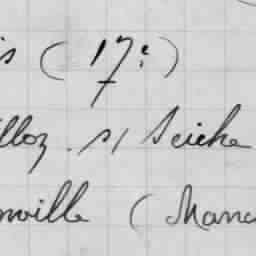 s (17e)
lloz. s/ Seiche
nville (Manc